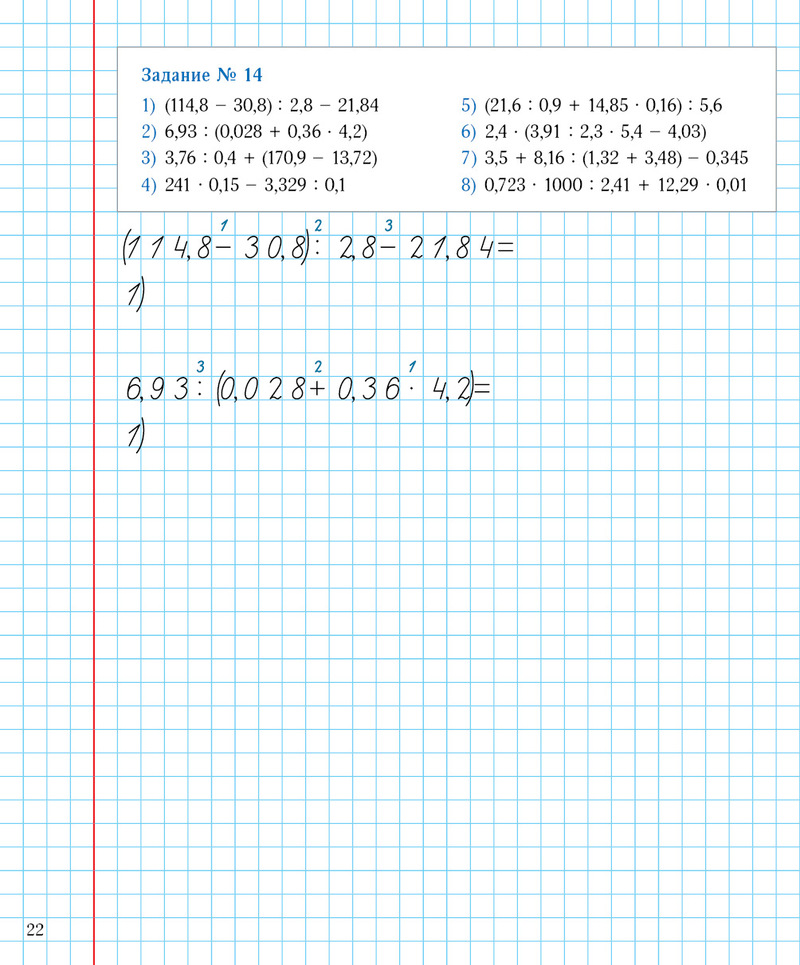 Задание № 14
1) (114,8 − 30,8) : 2,8 − 21,84
2) 6,93 : (0,028 + 0,36 · 4,2)
3) 3,76 : 0,4 + (170,9 − 13,72)
4) 241 · 0,15 − 3,329 : 0,1
5) (21,6 : 0,9 + 14,85 · 0,16) : 5,6
6) 2,4 · (3,91 : 2,3 · 5,4 − 4,03)
7) 3,5 + 8,16 : (1,32 + 3,48) − 0,345
8) 0,723 · 1000 : 2,41 + 12,29 · 0,01
1 2 3
(114,8− 30,8): 2,8− 21,84=
1)
3 2 1
6,93: (0,028+ 0,36· 4,2)=
1)
22